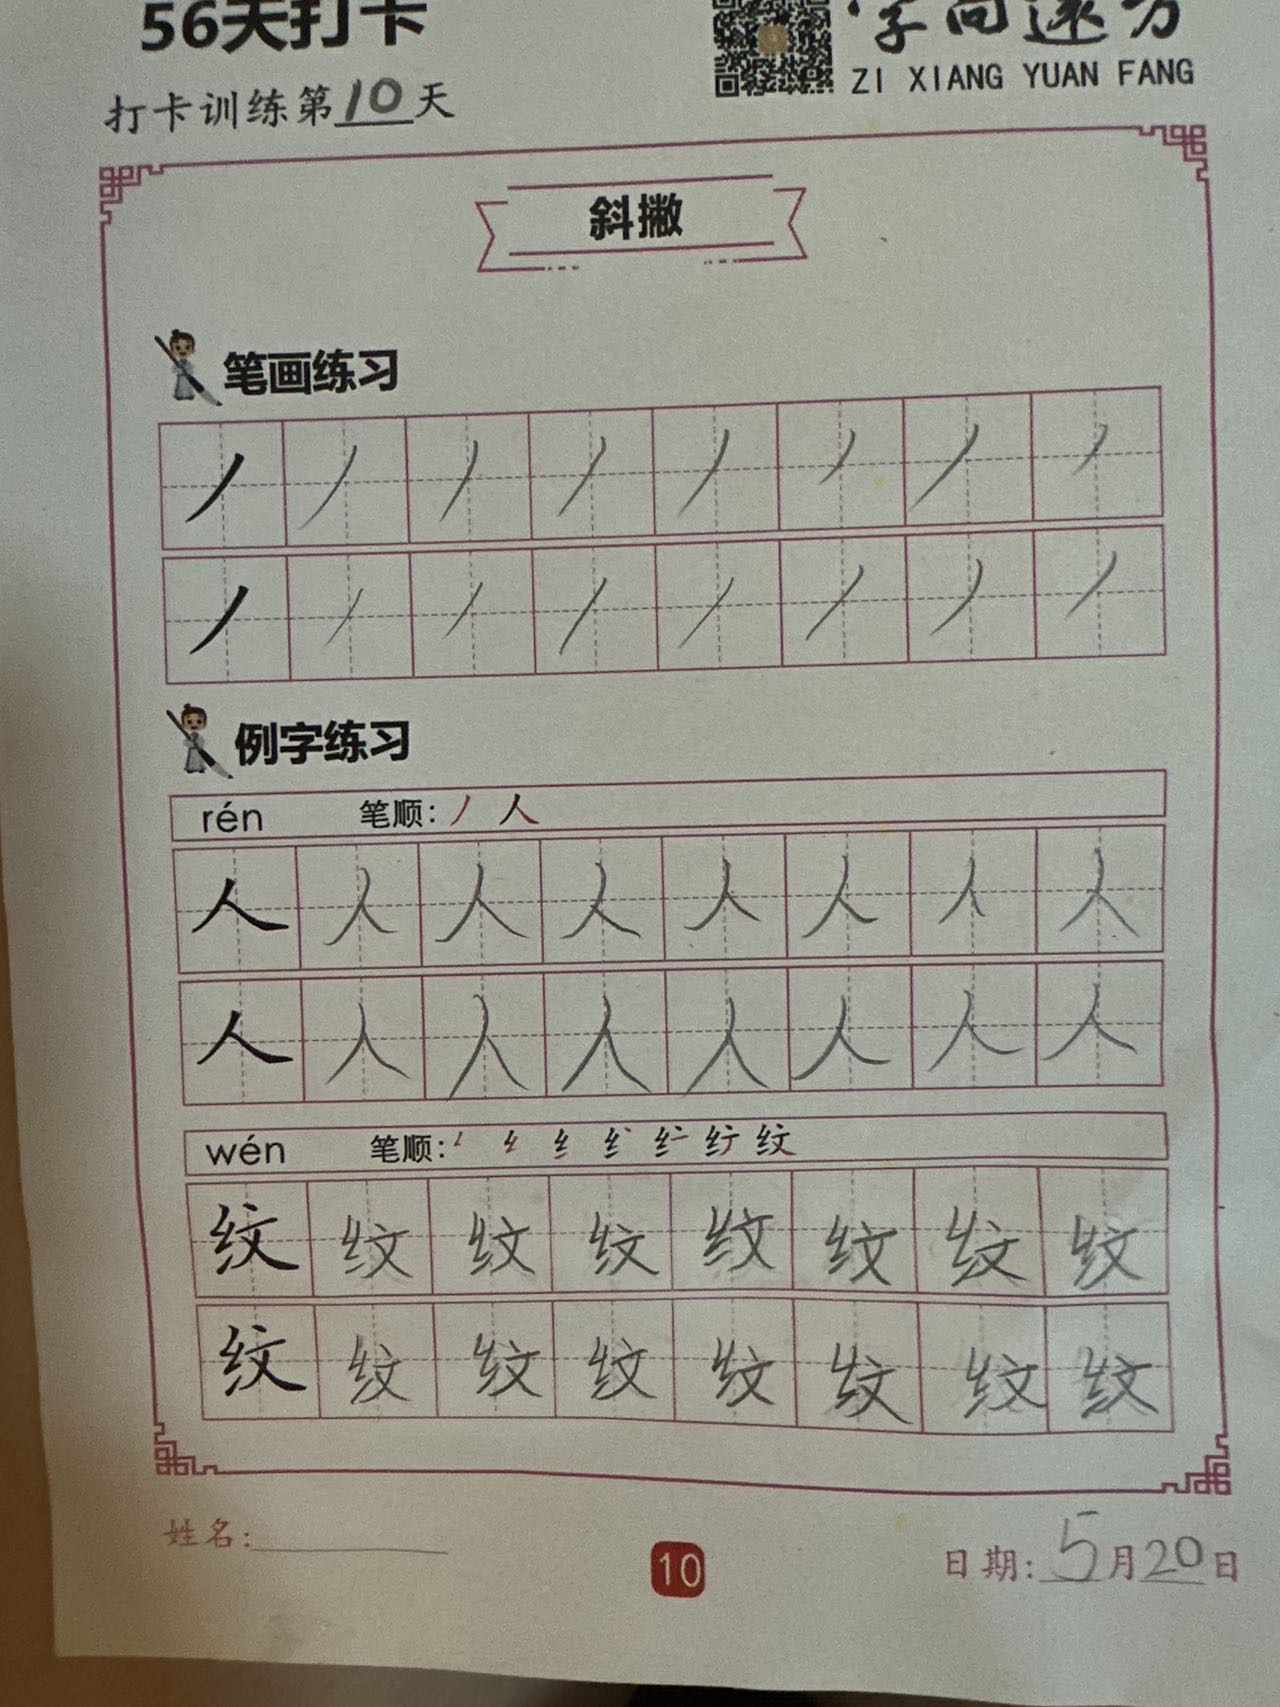 56天打卡
字向远方
ZI XIANG YUAN FANG
打卡训练第10天
斜撇
笔画练习
丿 丿 丿 丿 丿 丿 丿 丿
丿 丿 丿 丿 丿 丿 丿 丿
例字练习
rén 笔顺: 丿 人
人 人 人 人 人 人 人 人
人 人 人 人 人 人 人 人
wén 笔顺: 纹
纹 纹 纹 纹 纹 纹 纹 纹
纹 纹 纹 纹 纹 纹 纹 纹
姓名:
10
日期: 5月20日